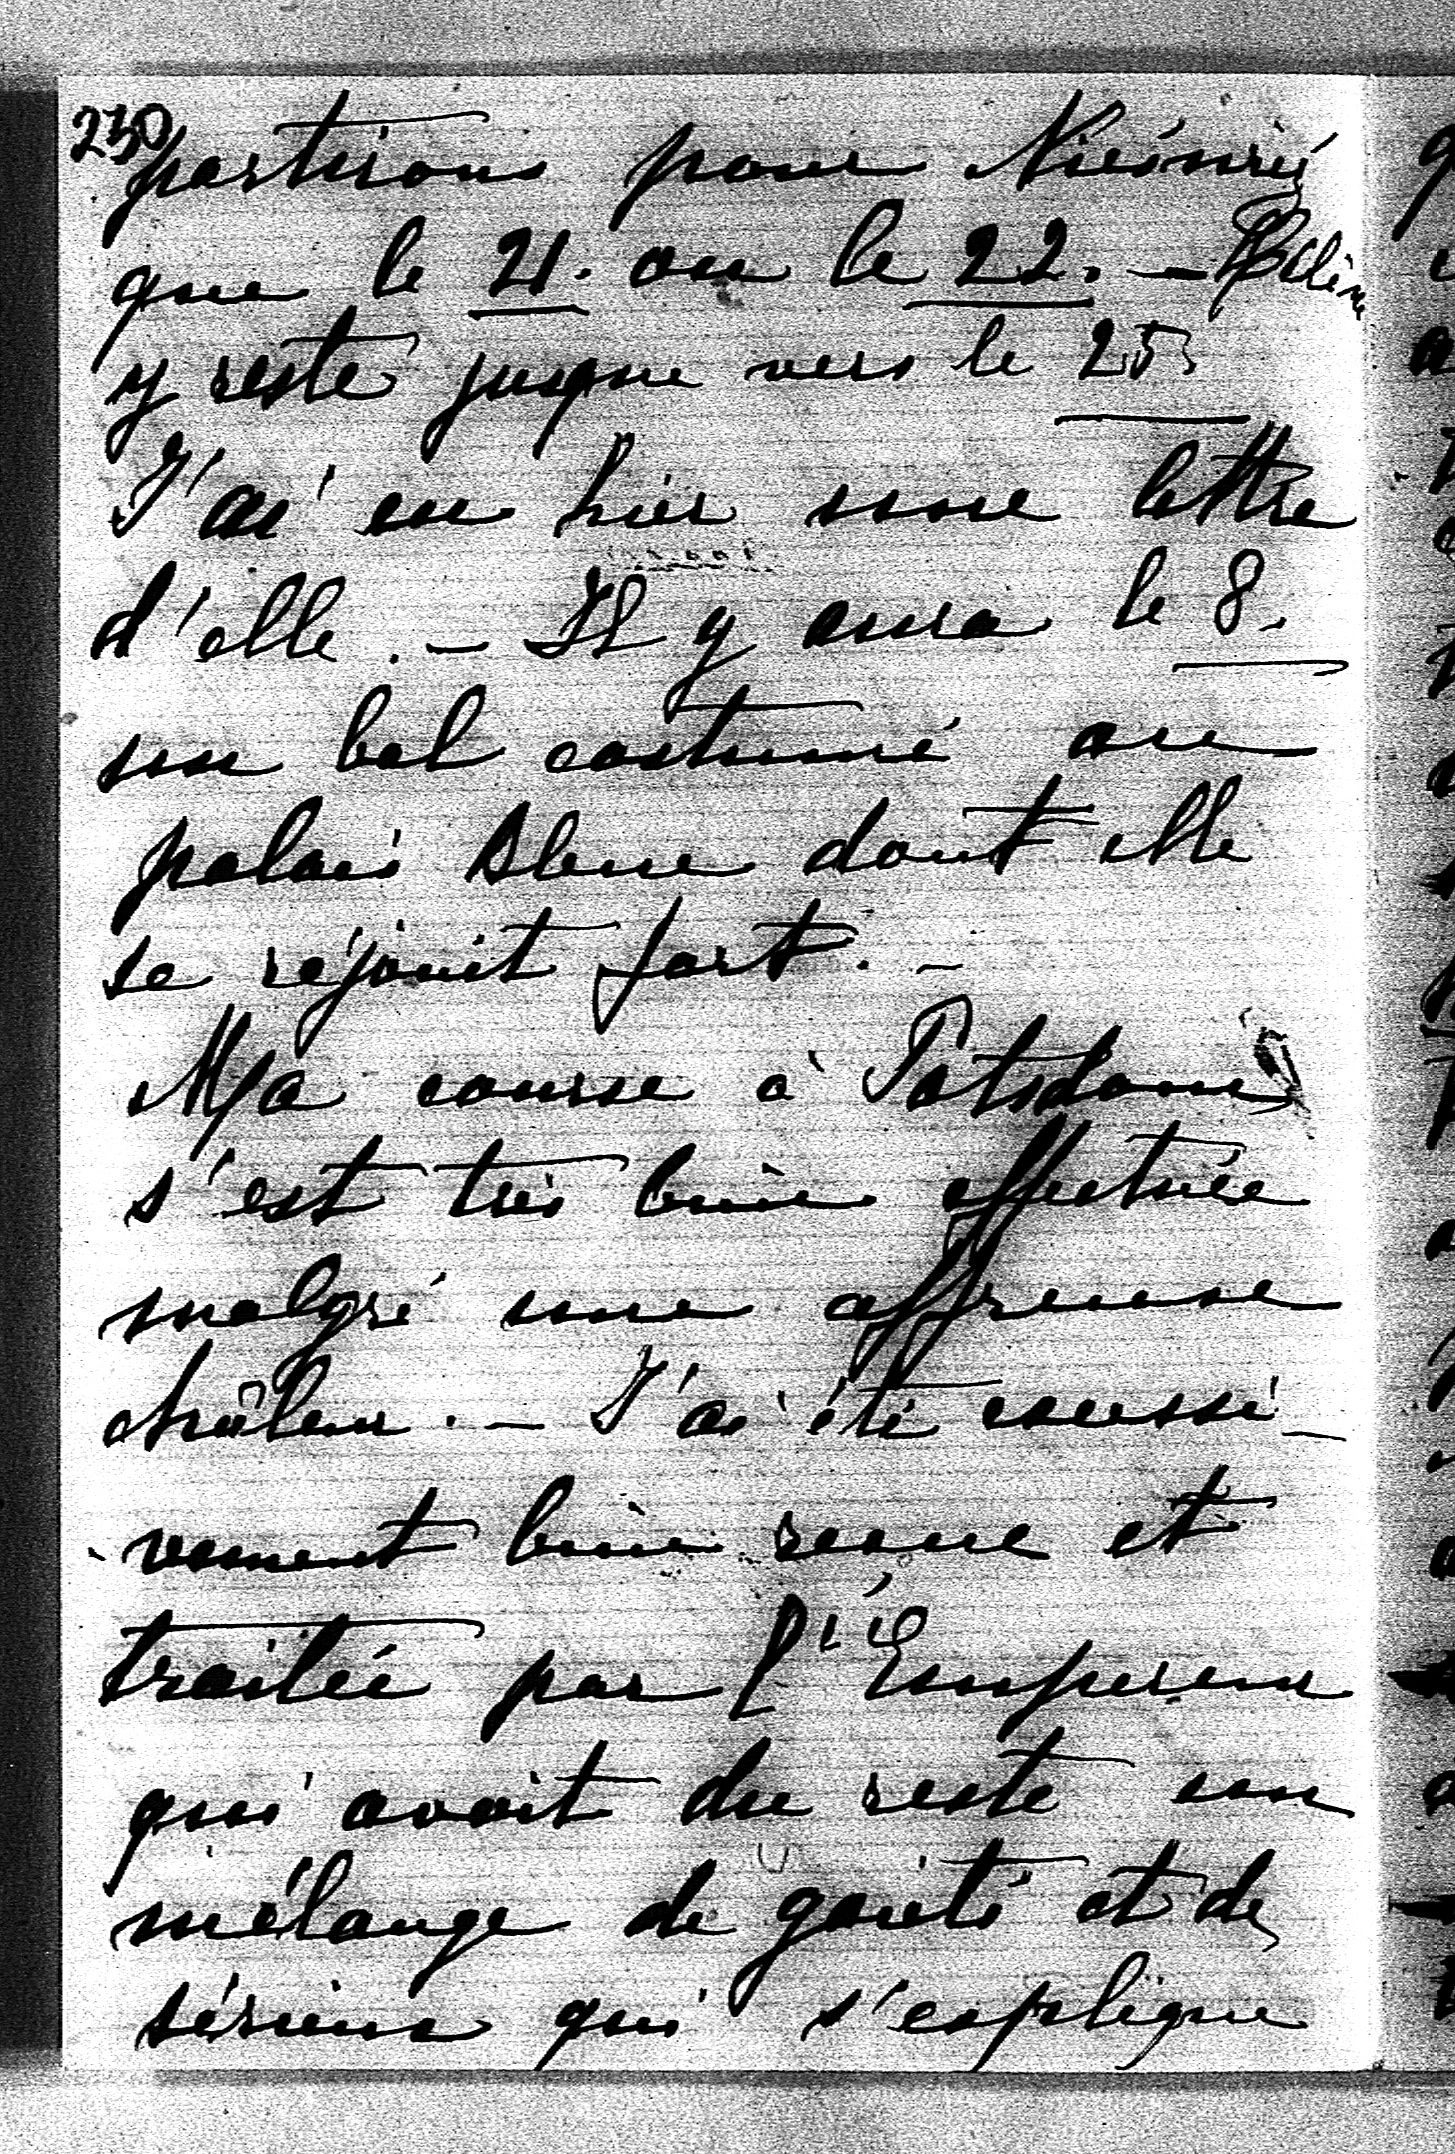 230
partirons pour Niésvież
que le 21. ou le 22. — Hélène
y reste jusque vers le 25
J'ai eu hier une lettre
d'elle. — Il y aura le 8.
un bal costumé au
palais Bleue dont elle
se réjouit fort. —
Ma course à Potsdam
s'est très bien effectuée
malgré une affreuse
châleur. — J'ai été excessi-
vement bien reçue et
traitée par l'Empereur
qui avait du reste un
mélange de gaieté et de
sérieux qui s'explique